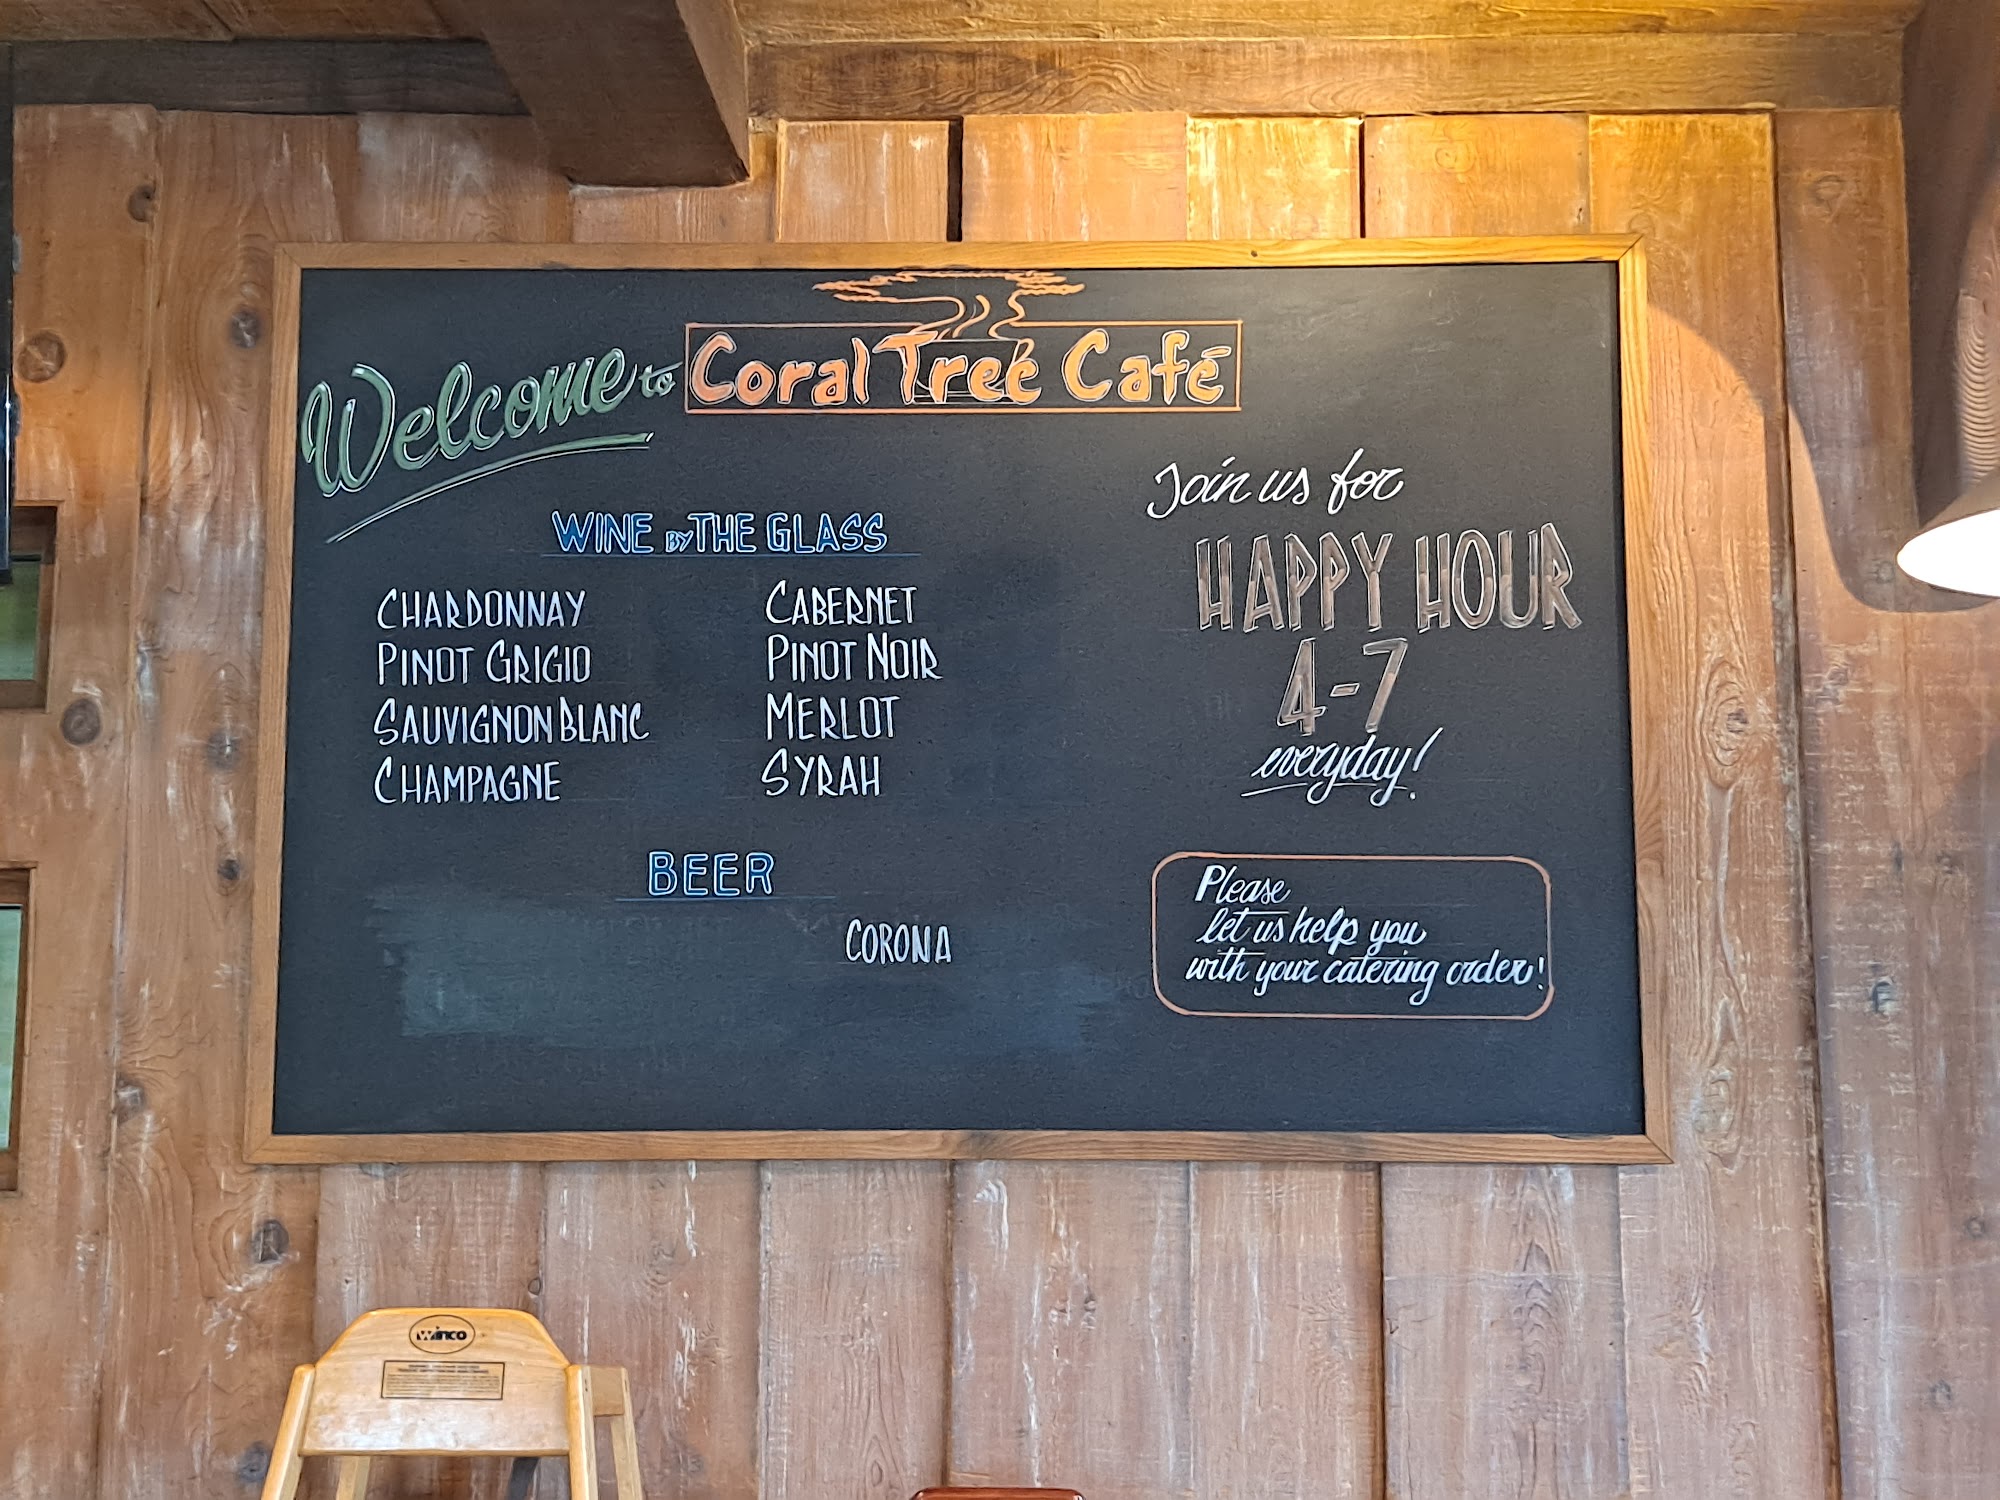 Welcome to Coral Tree Café
WINE BY THE GLASS
CHARDONNAY
PINOT GRIGIO
SAUVIGNON BLANC
CHAMPAGNE
CABERNET
PINOT NOIR
MERLOT
SYRAH
BEER
CORONA
Join us for
HAPPY HOUR
4-7
everyday!
Please
let us help you
with your catering order!
Winco